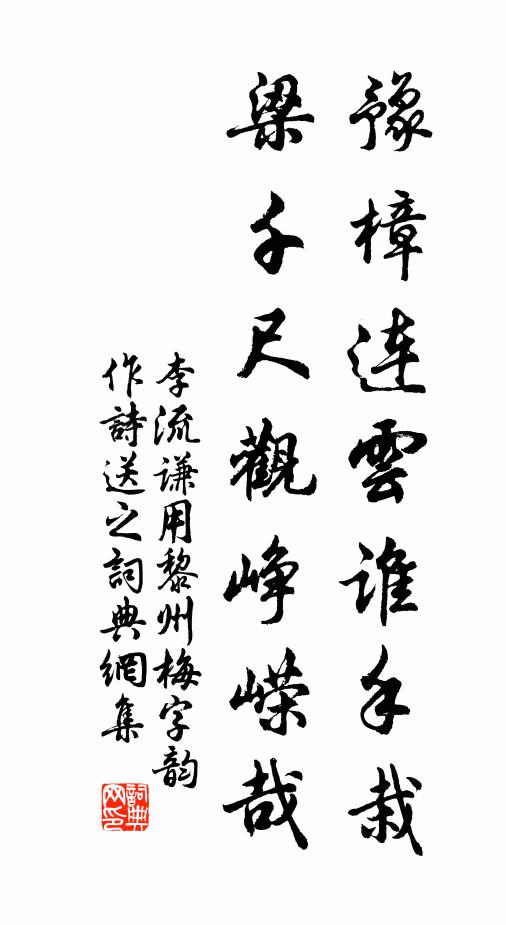 豫樟連雲誰手栽
梁千尺觀崢嶸哉
李流謙用黎州梅字韵
作詩送之詞典網集
詞典
网印